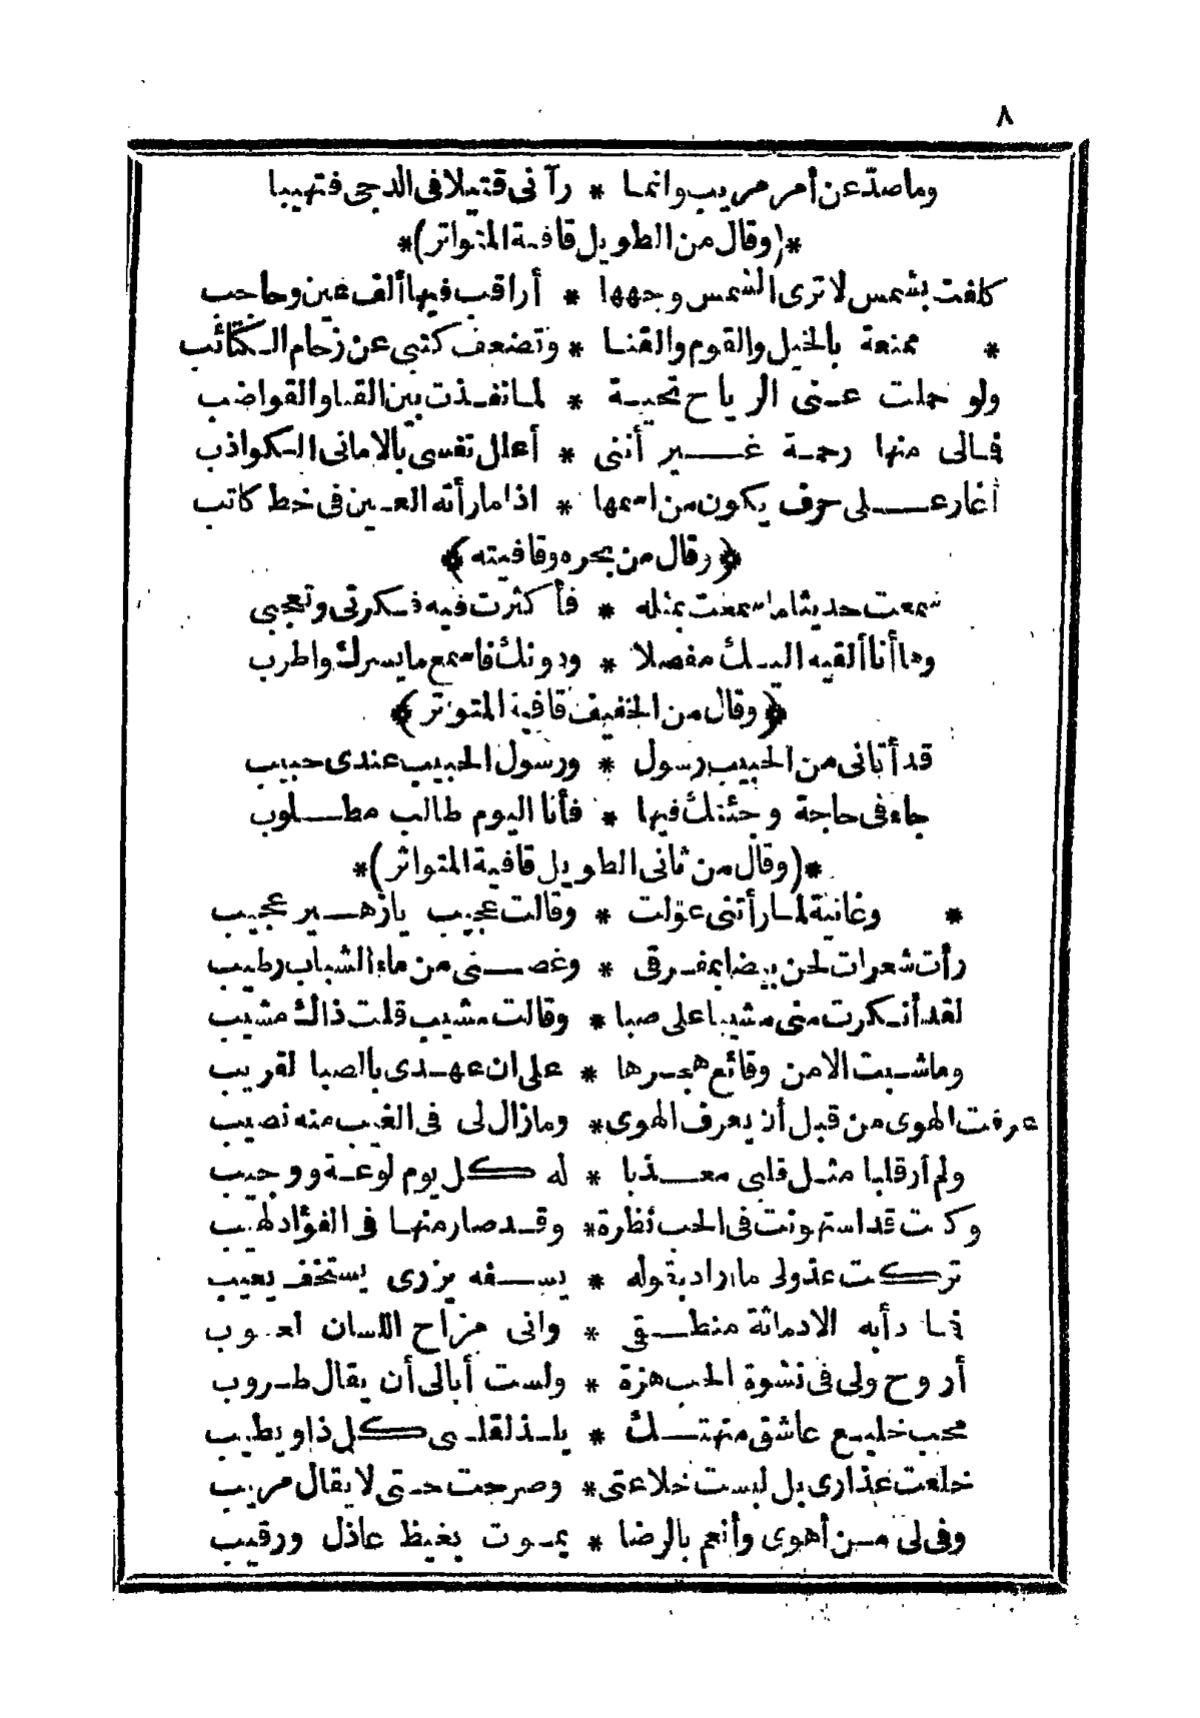 ٨
وما صدّ عن أمر مريب وانما * رآنى قتيلا فى الدجى فتهيبا
*(وقال من الطويل قافية المتواتر)*
كلفت بشمس لا ترى الشمس وجهها * أراقب فيها ألف عين وحاجب
* ممنعة بالخيل والقوم والقنا * وتضعف كتبى عن زحام الكتائب
ولو حملت عنى الرياح تحية * لما نفذت بين القنا والقواضب
فمالى منها رحمة غير أننى * أعلل نفسى بالامانى الكواذب
أغار على حرف يكون من اسمها * اذا ما رأته العين فى خط كاتب
﴿وقال من بحره وقافيته﴾
سمعت حديثا ما سمعت بمثله * فأكثرت فيه فكرتى وتعجبى
وها أنا ألقيه اليك مفصلا * ودونك فاسمع ما يسرك واطرب
﴿وقال من الخفيف قافية المتواتر﴾
قد أتانى من الحبيب رسول * ورسول الحبيب عندى حبيب
جاء فى حاجة وجئتك فيها * فأنا اليوم طالب مطلوب
*(وقال من ثانى الطويل قافية المتواتر)*
* وغانية لما رأتنى عوّلت * وقالت عجيب يا زهير عجيب
رأت شعرات لحن بيضا بمفرقى * وغصنى من ماء الشباب رطيب
لقد أنكرت منى مشيبا على صبا * وقالت مشيب قلت ذاك مشيب
وما شبت الا من وقائع هجرها * على ان عهدى بالصبا لقريب
عرفت الهوى من قبل أن يعرف الهوى * وما زال لى فى الغيب منه نصيب
ولم أر قلبا مثل قلبى معذبا * له كل يوم لوعة ووجيب
وكنت قد استهونت فى الحب نظرة * وقد صار منها فى الفؤاد لهيب
تركت عذولى ما أراد بقوله * يسفه يزرى يستخف يعيب
فما دأبه الا دماثة منطقى * وانى مزاح اللسان لعوب
أروح ولى فى نشوة الحب هزة * ولست أبالى أن يقال طروب
محب خليع عاشق متهتك * يلذ لقلبى كل ذا ويطيب
خلعت عذارى بل لبست خلاعتى * وصرحت حتى لا يقال مريب
وفى لى من أهوى وأنعم بالرضا * يموت بغيظ عاذل ورقيب